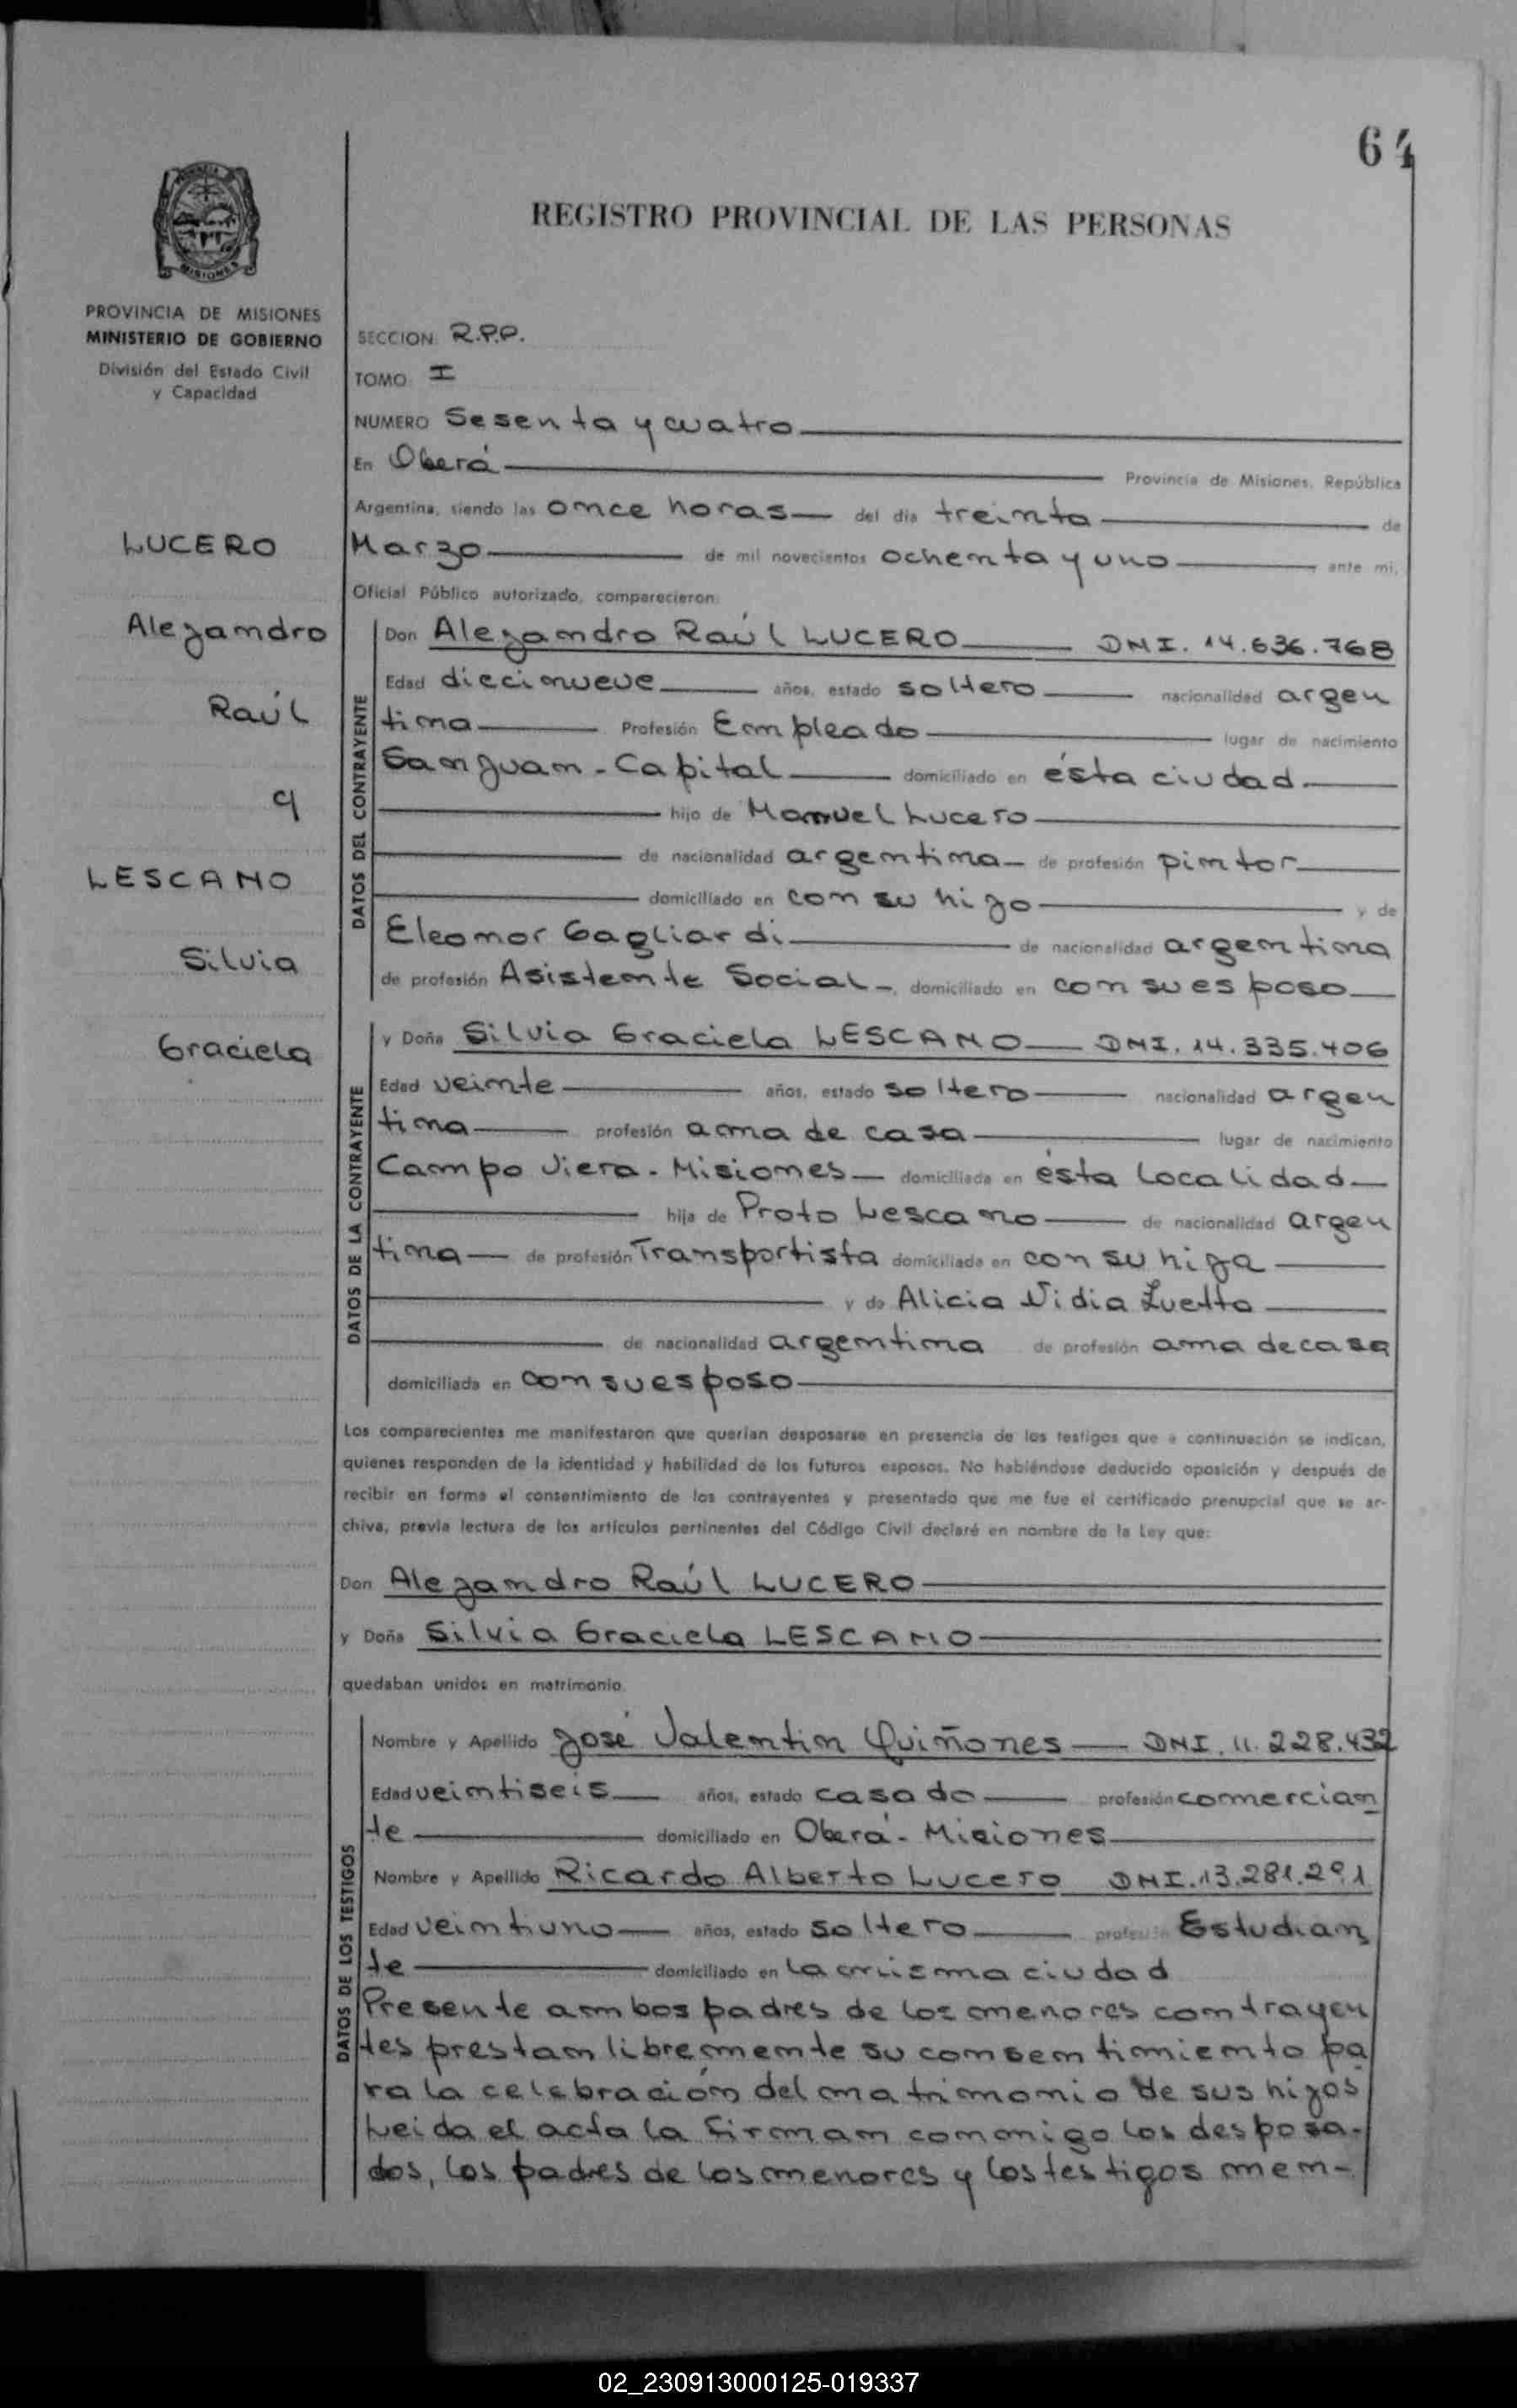 64
REGISTRO PROVINCIAL DE LAS PERSONAS
PROVINCIA DE MISIONES
MINISTERIO DE GOBIERNO
División del Estado Civil
y Capacidad
LUCERO
Alejandro
Raúl
y
LESCANO
Silvia
Graciela
SECCION R.P.P.
TOMO I
NUMERO Sesenta y cuatro
En Oberá Provincia de Misiones, República
Argentina, siendo las once horas del día treinta de
Marzo de mil novecientos ochenta y uno ante mi,
Oficial Público autorizado, comparecieron:
DATOS DEL CONTRAYENTE
Don Alejandro Raúl LUCERO DNI. 14.636.768
Edad diecinueve años, estado soltero nacionalidad argen
tina Profesión Empleado lugar de nacimiento
San Juan - Capital domiciliado en ésta ciudad
hijo de Manuel Lucero
de nacionalidad argentina de profesión pintor
domiciliado en con su hijo y de
Eleonor Gagliardi de nacionalidad argentina
de profesión Asistente Social domiciliado en con su esposo
DATOS DE LA CONTRAYENTE
y Doña Silvia Graciela LESCANO DNI. 14.335.406
Edad veinte años, estado soltero nacionalidad argen
tina profesión ama de casa lugar de nacimiento
Campo Viera - Misiones domiciliada en ésta localidad
hija de Proto Lescano de nacionalidad argen
tina de profesión Transportista domiciliado en con su hija
y de Alicia Nidia Zuetto
de nacionalidad argentina de profesión ama de casa
domiciliada en con su esposo
Los comparecientes me manifestaron que querían desposarse en presencia de los testigos que a continuación se indican,
quienes responden de la identidad y habilidad de los futuros esposos. No habiéndose deducido oposición y después de
recibir en forma el consentimiento de los contrayentes y presentado que me fue el certificado prenupcial que se ar-
chiva, previa lectura de los artículos pertinentes del Código Civil declaré en nombre de la Ley que:
Don Alejandro Raúl LUCERO
y Doña Silvia Graciela LESCANO
quedaban unidos en matrimonio.
DATOS DE LOS TESTIGOS
Nombre y Apellido José Valentin Quiñones DNI. 11.228.432
Edad veintiseis años, estado casado profesión comercian
te domiciliado en Oberá - Misiones
Nombre y Apellido Ricardo Alberto Lucero DNI. 13.281.291
Edad veintiuno años, estado soltero profesión Estudian
te domiciliado en la misma ciudad
Presente ambos padres de los menores contrayen
tes prestan libremente su consentimiento pa
ra la celebración del matrimonio de sus hijos
Leida el acta la firman conmigo los desposa-
dos, los padres de los menores y los testigos men-
02_230913000125-019337